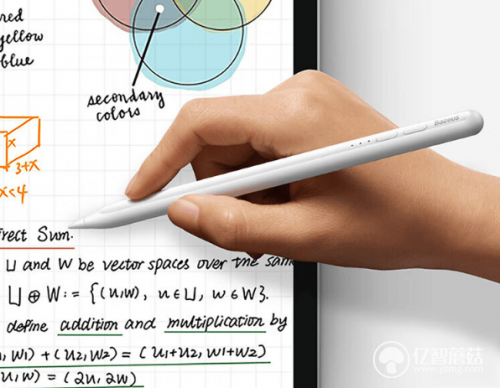 red
yellow
blue
secondary
colors
x
3+x
x<4
rect Sum.
U and W be vector spaces over the same
U ⊕ W := {(u,w), u ∈ U, w ∈ W}.
define addition and multiplication by
, w1) + (u2, w2) = (u1+u2, w1+w2)
u, w) = (λu, λw)
Baseus
亿智蘑菇